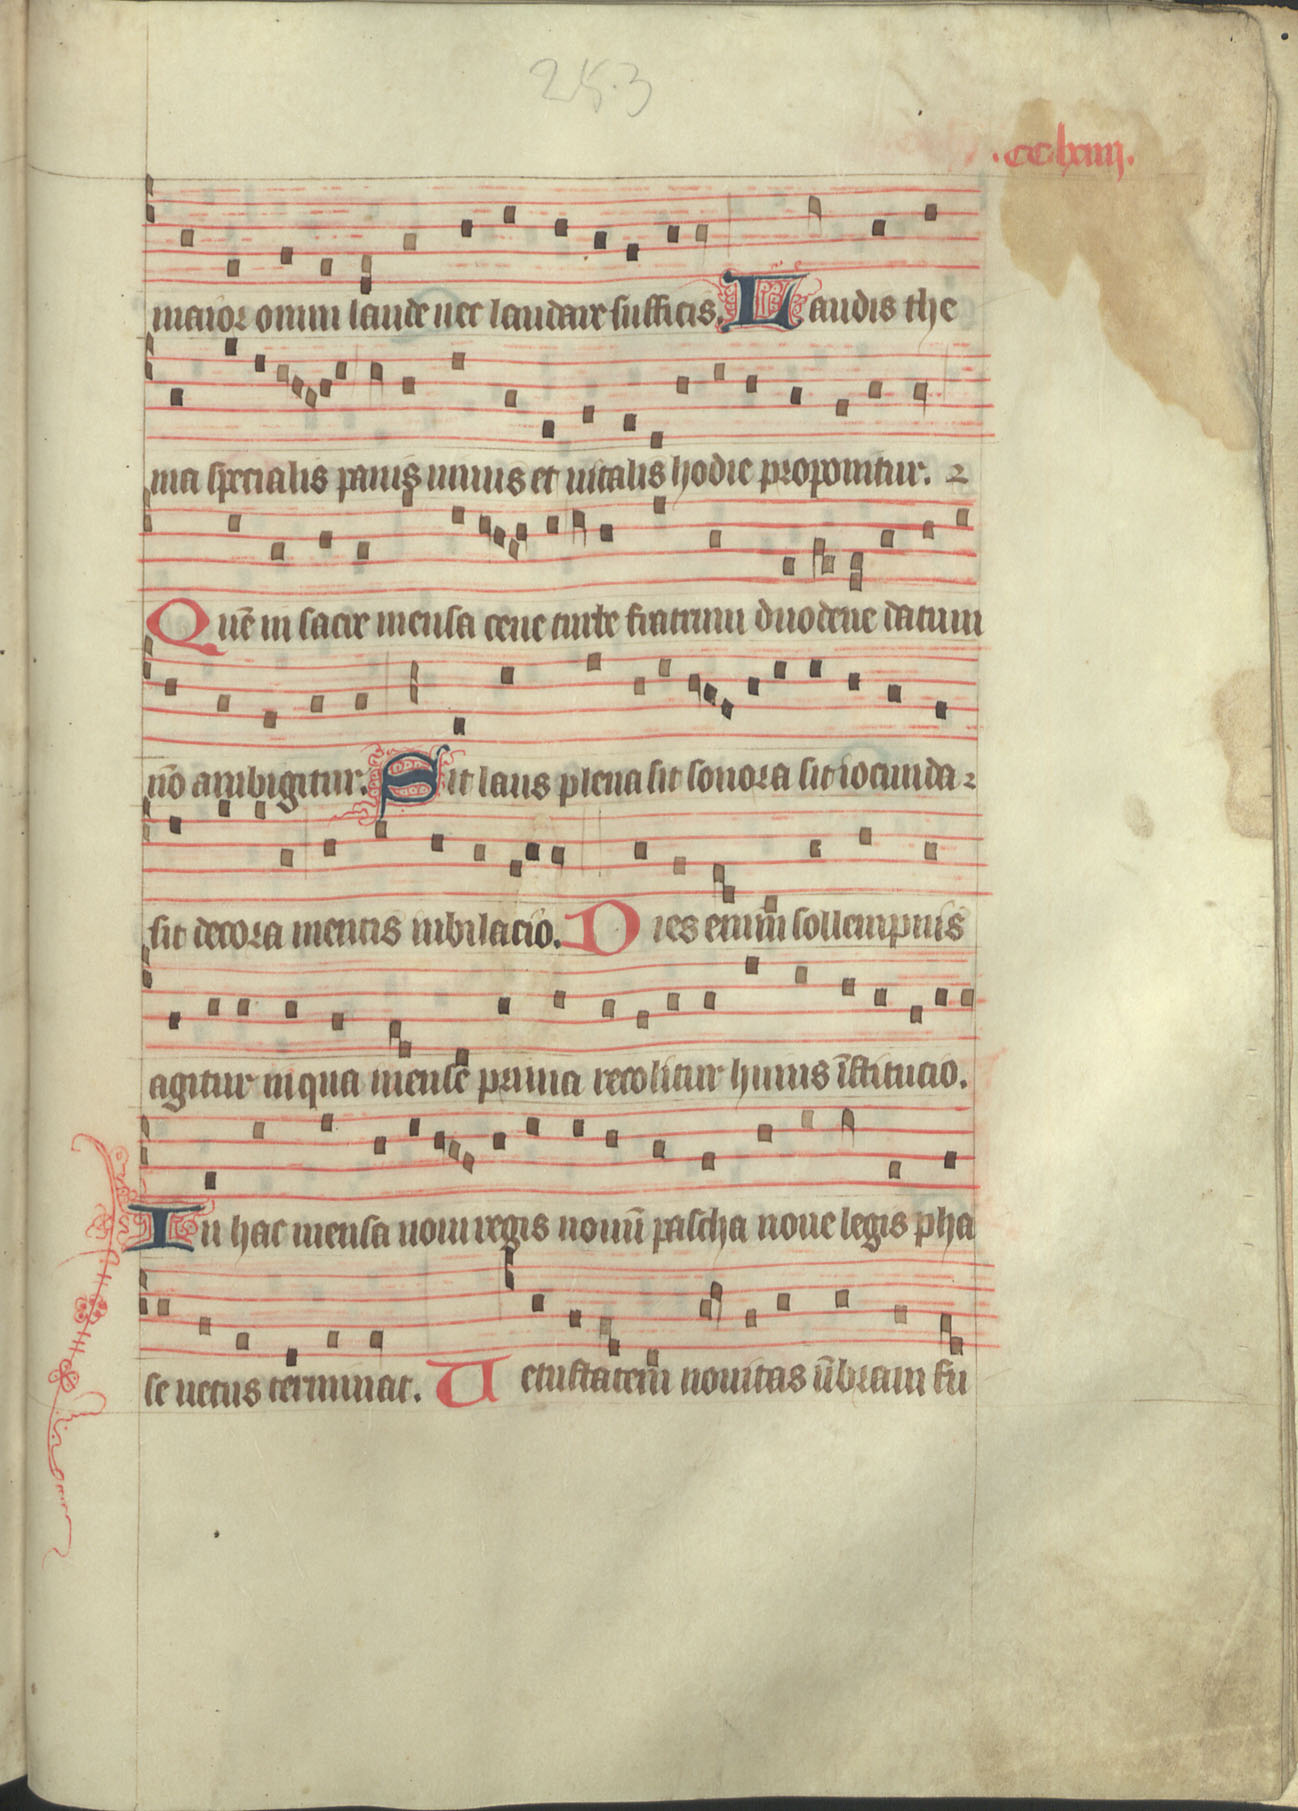 253
.cclxiiij.
maior omni laude nec laudare sufficis. Laudis the
ma specialis panis uiuus et uitalis hodie proponitur. ⁊
Quē in sacre mensa cene turbe fratrum duodene datum
nō ambigitur. Sit laus plena sit sonora sit iocunda
sit decora mentis iubilacio. Dies enim sollempnis
agitur in qua mense prima recolitur huius īstitucio.
In hac mensa noui regis nouū pascha noue legis pha
se uetus terminat. Uetustatem nouitas ūbram fu